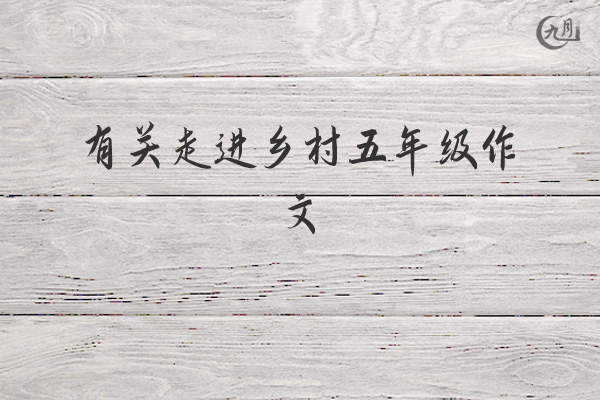 九月
有关走进乡村五年级作
文